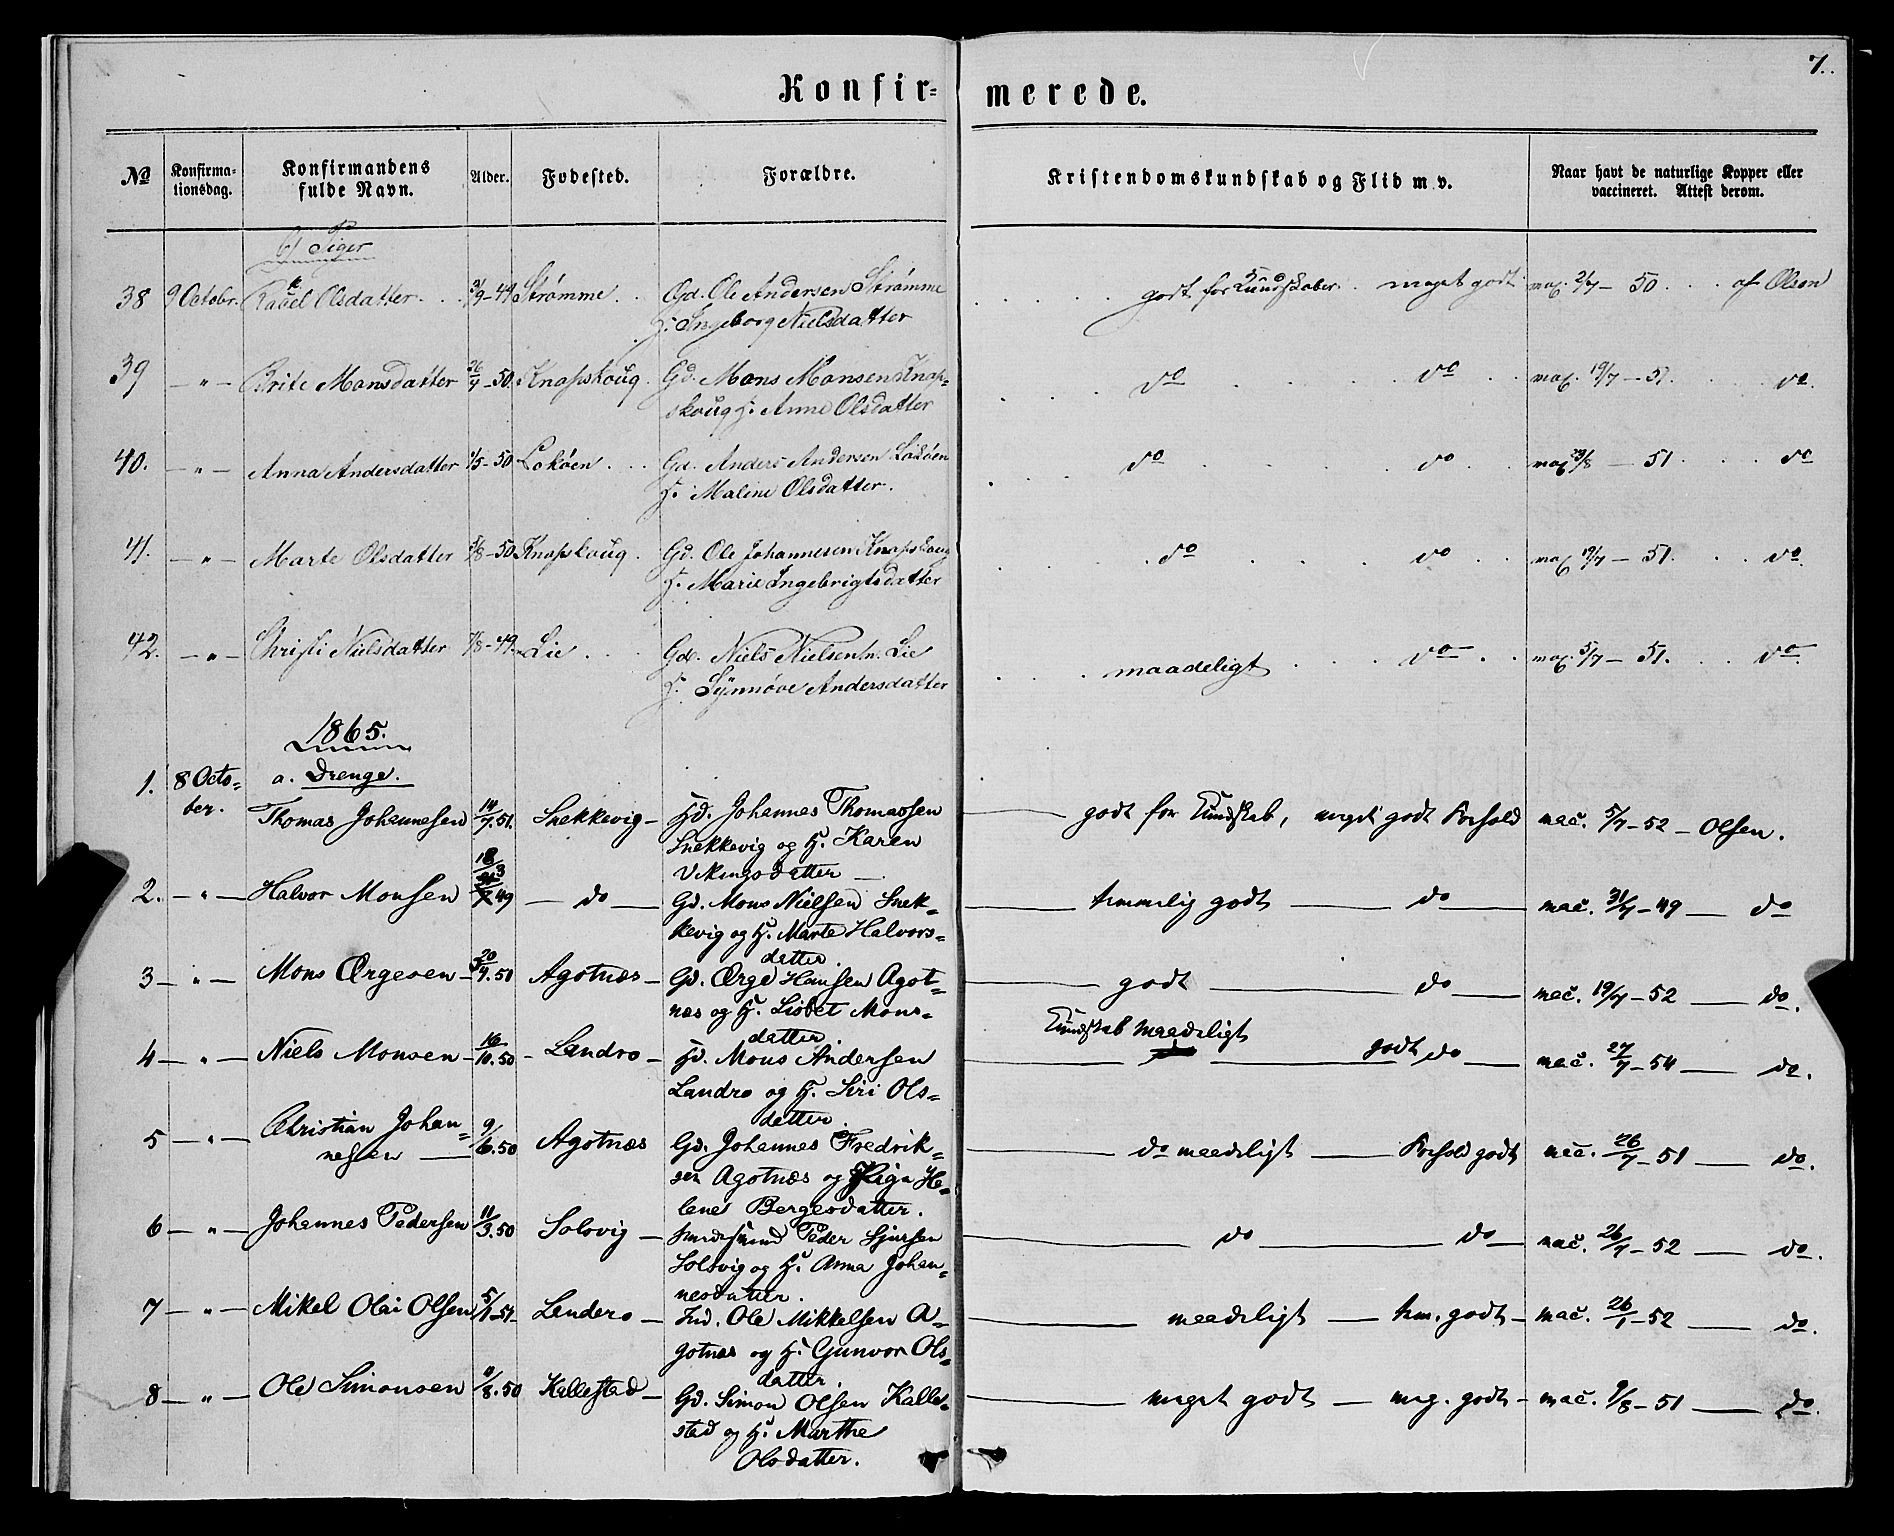 7.
Konfir- merede.
No Konfirma- tionsdag. Konfirmandens fulde Navn. Alder. Fødested. Forældre. Kristendomskundskab og Flid m. v. Naar havt de naturlige Kopper eller vaccineret. Attest derom.
b/ Piger
38 9 Octobr. Rakel Olsdatter 3/9-49 Strømme Gd. Ole Andersen Strømme godt for Kundskaber meget godt vac. 2/7 - 50 af Olsen
H. Ingeborg Nielsdatter
39 - " - Brite Monsdatter 26/4-50. Knapskoug. Gd. Mons Monsen Knap- do do vac. 19/7 - 51. do.
skoug H. Anne Olsdatter
40. - " - Anna Andersdatter 1/5-50 Lokøen Gd. Anders Andersen Lokøen do do vac. 23/8 - 51 do
H. Maline Olsdatter.
41. - " - Marte Olsdatter 5/8-50 Knapskoug. Gd. Ole Johannesen Knapskoug do do vac. 19/7 - 51. do.
H. Marie Ingebrigtsdatter
42. - " - Christi Nielsdatter 7/8-49. Lie Gd. Niels Nielsen Lie maadeligt do vac. 5/7 - 51. do.
H. Synnøve Andersdatter
1865.
a. Drenge.
1. 8 Octo= Thomas Johannesen 14/7.51. Snekkevig - Hd. Johannes Thomassen godt for Kundskab, meget godt Forhold vac. 5/7-52 - Olsen.
ber. Snekkevig og H. Karen
Vikingsdatter -
2. - " - Halvor Monsen 18/3 49 - do - Gd. Mons Nielsen Snek= temmelig godt do vac. 31/7-49 - do
kevig og H. Marte Halvors=
datter.
3 - " - Mons Ørgesen - 20/4.51 Agotnæs - Gd. Ørge Hansen Agot= godt do vac. 19/7-52 - do.
næs og H. Lisbet Mons=
datter.
4 - " - Niels Monsen - 16/10.50 - Landro - Hd. Mons Andersen Kundskab maadeligt godt do vac. 27/7-54 - do.
Landro og H. Siri Ols=
datter.
5 - " - Christian Johan= 9/6.50 Agotnæs Gd. Johannes Fredrik= do maadeligt - Forhold godt vac. 26/7-51 - do.
nessen - sen Agotnæs og Pige He=
lene Bergesdatter.
6 - " - Johannes Pedersen 11/3.50 Solsvig - Peder Sjursen do do vac. 26/7-52 - do.
Solsvig og H. Anna Johan=
nesdatter.
7 - " - Mikel Olai Olsen 5/1-51- Landero - Ind. Ole Mikkelsen A= maadeligt - tem. godt - vac. 26/1-52 - do.
gotnæs og H. Gunvor Ols=
datter.
8 - " - Ole Simonsen 11/8.50 Kallestad - Gd. Simon Olsen Kalle= meget godt - meg. godt - vac. 9/8-51 - do.
stad og H. Marthe
Olsdatter.